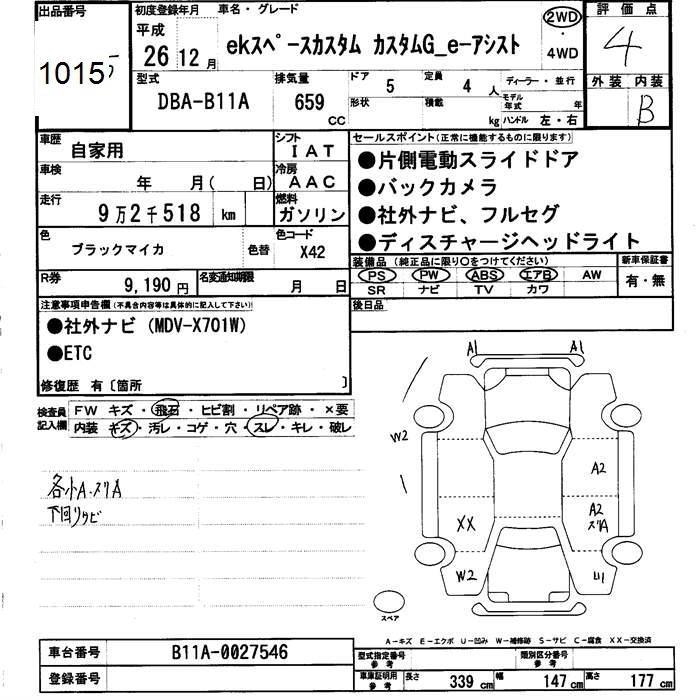 出品番号
1015
初度登録年月
平成
26 12 月
車名・グレード
ekスペースカスタム カスタムG_e-アシスト
2WD
・
4WD
評価点
4
外装 内装
B
型式
DBA-B11A
排気量
659
CC
ドア
5
定員
4
人
形状
積載
kg
ディーラー・並行
モデル
年式
年
ハンドル 左・右
車歴
自家用
シフト
IAT
車検
年 月( 日)
冷房
AAC
走行
9万2千518 km
燃料
ガソリン
色
ブラックマイカ
色替
色コード
X42
R券
9,190 円
名変通知期限
月 日
セールスポイント(正常に機能するものに限ります)
●片側電動スライドドア
●バックカメラ
●社外ナビ、フルセグ
●ディスチャージヘッドライト
装備品(純正品に限り○をつけてください)
新車保証書
PS PW ABS エアB AW
SR ナビ TV カワ
有・無
後日品
注意事項申告欄(不具合内容等は具体的に記入して下さい)
●社外ナビ (MDV-X701W)
●ETC
修復歴 有〔箇所 〕
検査員
記入欄
FW キズ・飛石・ヒビ割・リペア跡・×要
内装 キズ・汚レ・コゲ・穴・スレ・キレ・破レ
各小A.スリA
下回りサビ
A1 A1
W2
A2
A2
スリA
XX
W2
スペア
A-キズ E-エクボ U-凹み W-補修跡 S-サビ C-腐食 XX-交換済
車台番号
B11A-0027546
登録番号
型式指定番号
参考
類別区分番号
参考
車庫証明用
参考
長さ
339 cm
幅
147 cm
高さ
177 cm